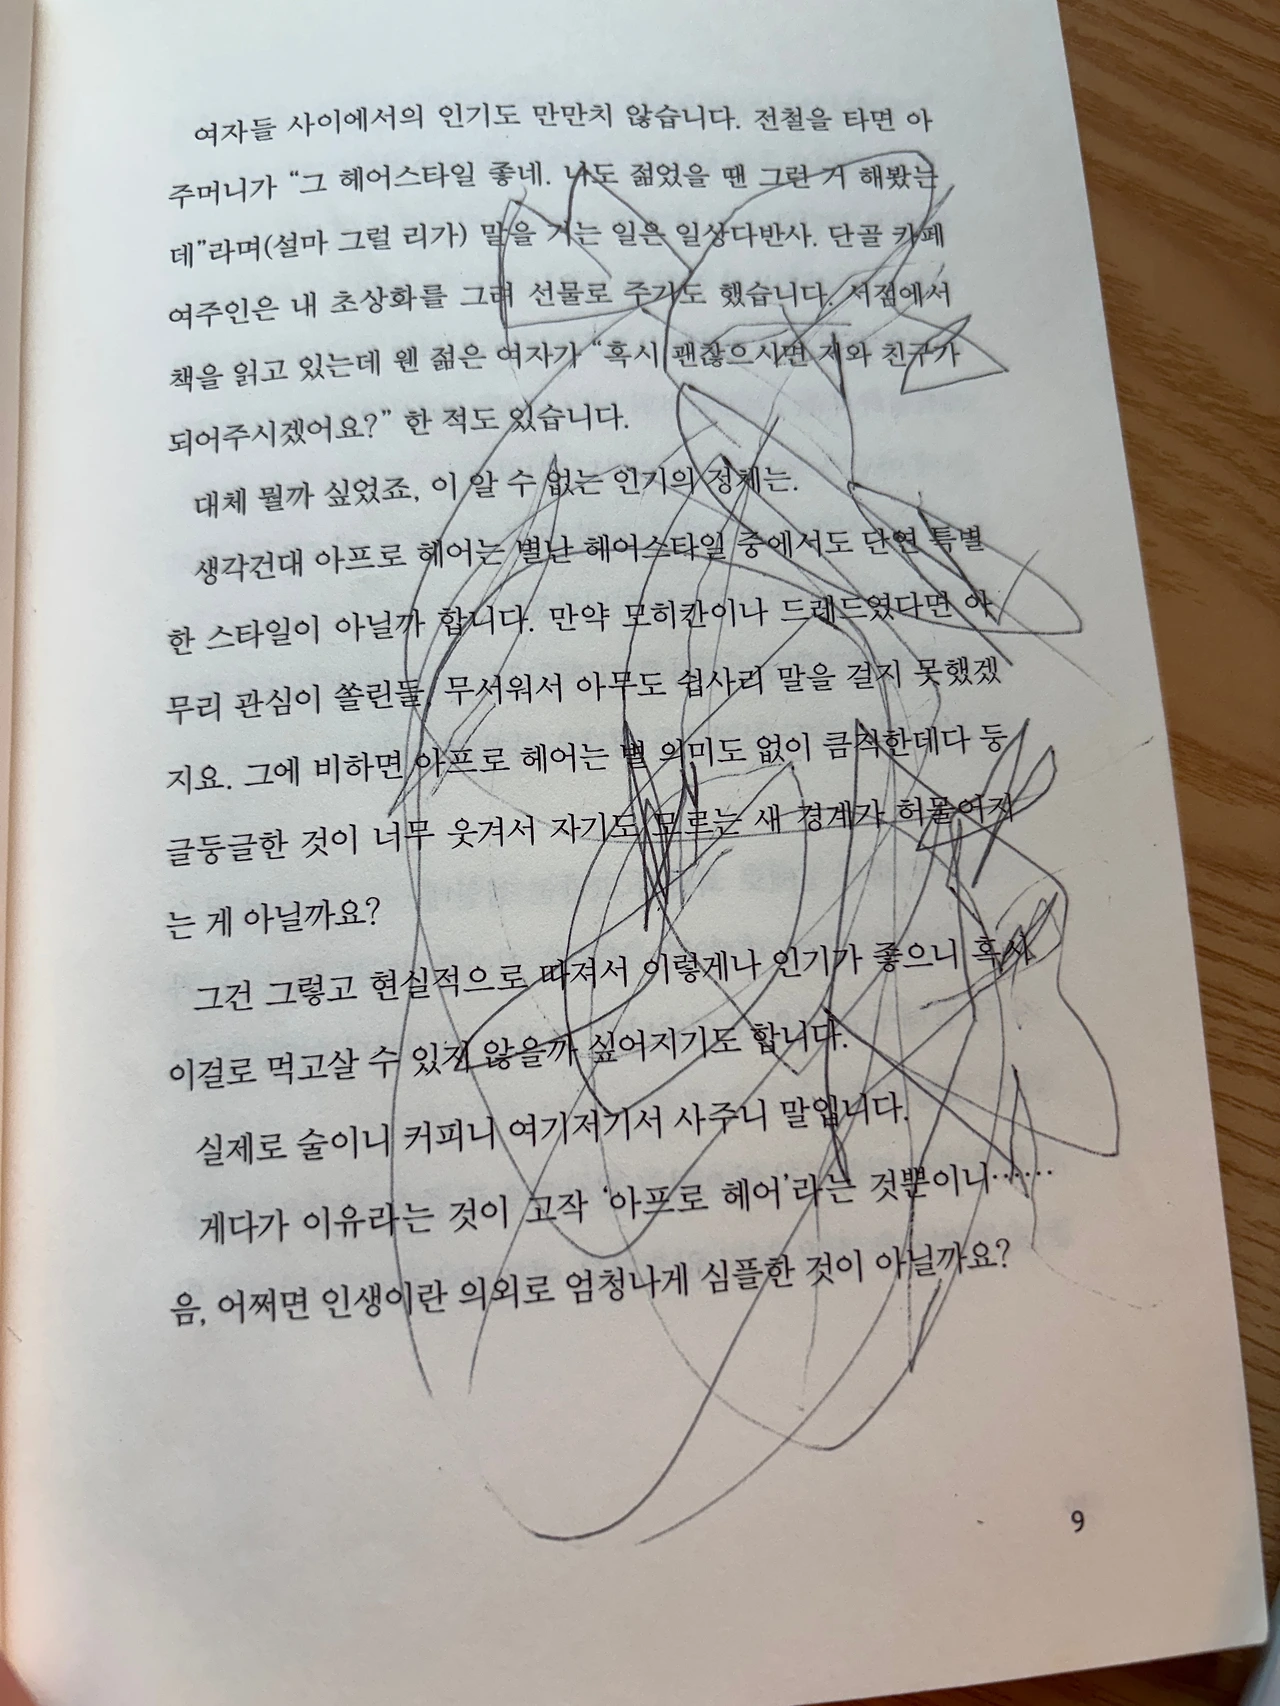 여자들 사이에서의 인기도 만만치 않습니다. 전철을 타면 아
주머니가 “그 헤어스타일 좋네. 나도 젊었을 땐 그런 거 해봤는
데”라며(설마 그럴 리가) 말을 거는 일은 일상다반사. 단골 카페
여주인은 내 초상화를 그려 선물로 주기도 했습니다. 서점에서
책을 읽고 있는데 웬 젊은 여자가 “혹시 괜찮으시면 저와 친구가
되어주시겠어요?” 한 적도 있습니다.
대체 뭘까 싶었죠, 이 알 수 없는 인기의 정체는.
생각건대 아프로 헤어는 별난 헤어스타일 중에서도 단연 특별
한 스타일이 아닐까 합니다. 만약 모히칸이나 드레드였다면 아
무리 관심이 쏠린들, 무서워서 아무도 쉽사리 말을 걸지 못했겠
지요. 그에 비하면 아프로 헤어는 별 의미도 없이 큼직한데다 둥
글둥글한 것이 너무 웃겨서 자기도 모르는 새 경계가 허물어지
는 게 아닐까요?
그건 그렇고 현실적으로 따져서 이렇게나 인기가 좋으니 혹시
이걸로 먹고살 수 있지 않을까 싶어지기도 합니다.
실제로 술이니 커피니 여기저기서 사주니 말입니다.
게다가 이유라는 것이 고작 ‘아프로 헤어’라는 것뿐이니……
음, 어쩌면 인생이란 의외로 엄청나게 심플한 것이 아닐까요?
9